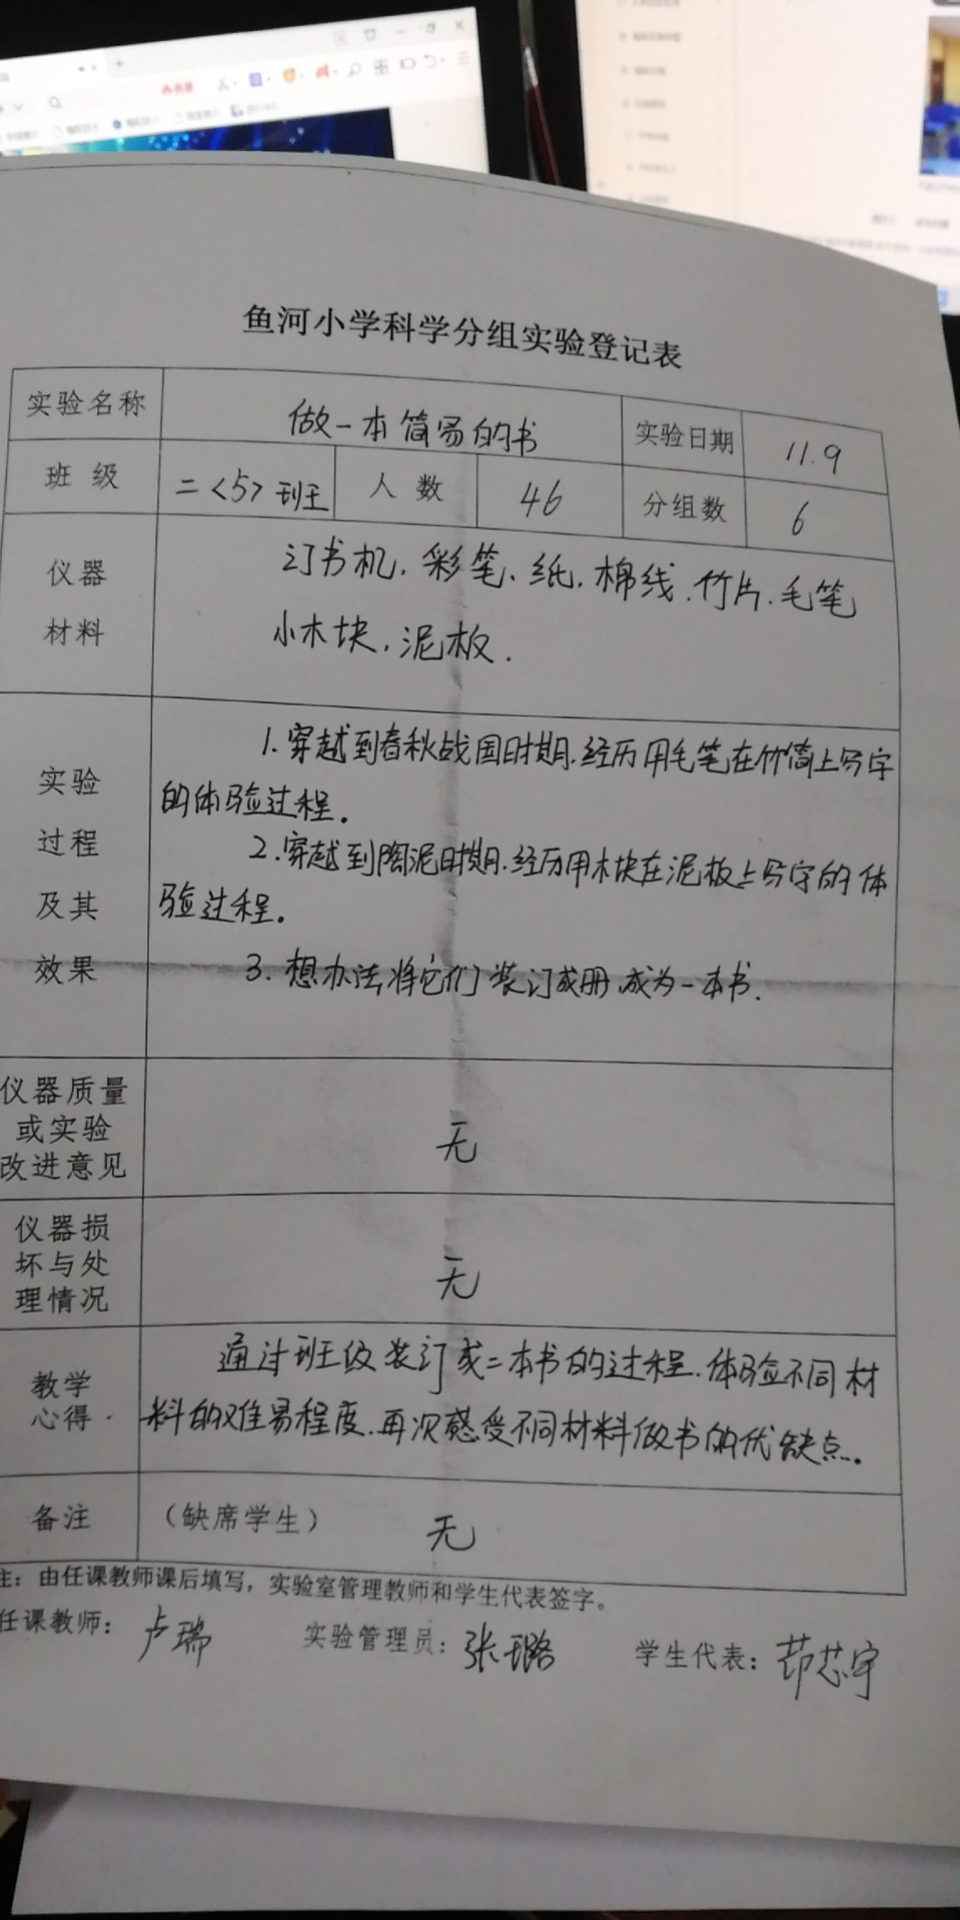 鱼河小学科学分组实验登记表
实验名称 做一本简易的书 实验日期 11.9
班级 二<5>班 人数 46 分组数 6
仪器 订书机、彩笔、纸、棉线、竹片、毛笔
材料 小木块、泥板.
1.穿越到春秋战国时期.经历用毛笔在竹简上写字
实验 的体验过程.
过程 2.穿越到陶泥时期.经历用木块在泥板上写字的体
及其 验过程.
效果 3.想办法将它们装订成册.成为一本书.
仪器质量
或实验 无
改进意见
仪器损
坏与处 无
理情况
教学 通过班级装订成二本书的过程.体验不同材
心得 料的难易程度.再次感受不同材料做书的优缺点.
备注 (缺席学生) 无
注：由任课教师课后填写，实验室管理教师和学生代表签字。
任课教师：卢瑞 实验管理员：张璐 学生代表：芯宇